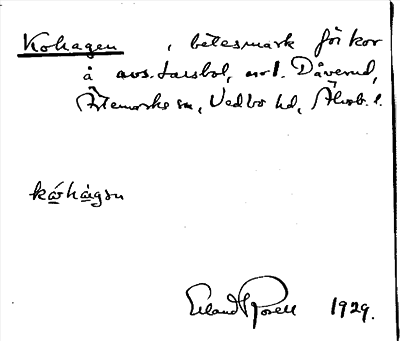 Kohagen , betesmark för kor
å avs. Larsbol, nr 1. Dåverud,
Ärtemarks sn, Vedbo hd, Älvsb. l.
kóhàgən
Erland Rosell 1929.